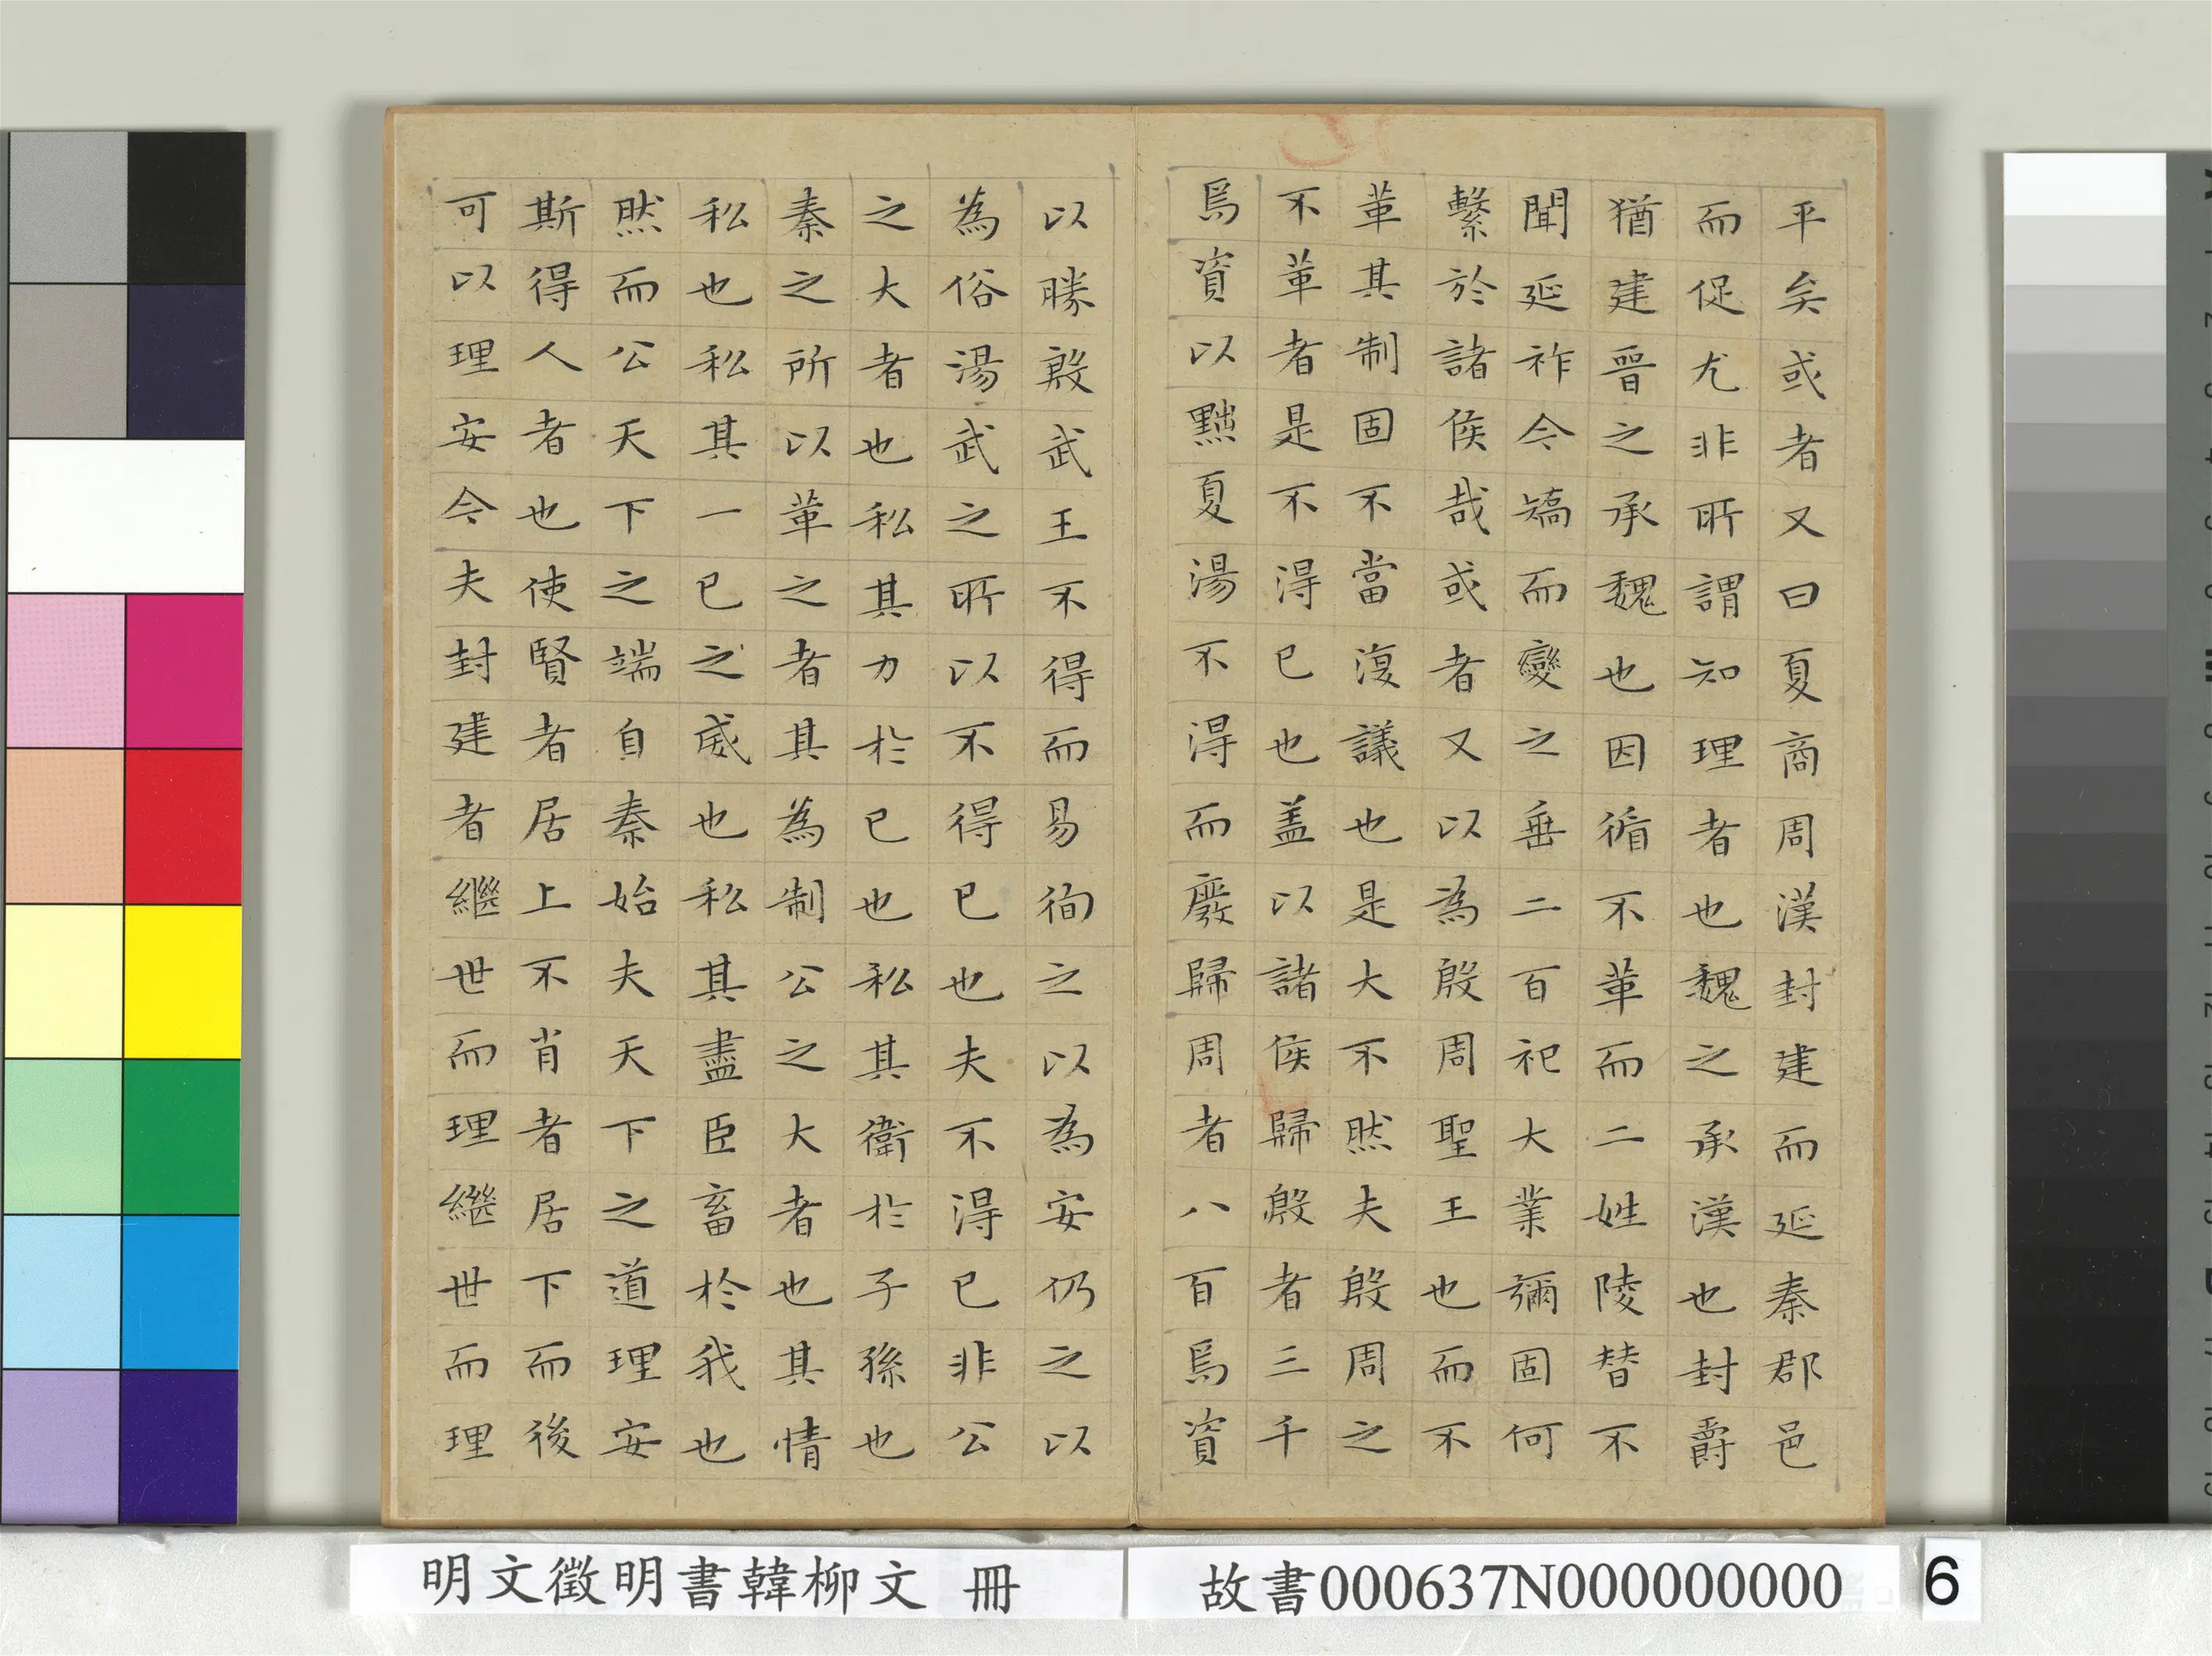 平矣或者又曰夏商周漢封建而延秦郡邑
而促尤非所謂知理者也魏之承漢也封爵
猶建晉之承魏也因循不革而二姓陵替不
聞延祚今矯而變之垂二百祀大業彌固何
繫於諸侯哉或者又以為殷周聖王也而不
革其制固不當復議也是大不然夫殷周之
不革者是不得已也盖以諸侯歸殷者三千
焉資以黜夏湯不得而廢歸周者八百焉資
以勝殷武王不得而易徇之以為安仍之以
為俗湯武之所以不得已也夫不得已非公
之大者也私其力於已也私其衛於子孫也
秦之所以革之者其為制公之大者也其情
私也私其一已之威也私其盡臣畜於我也
然而公天下之端自秦始夫天下之道理安
斯得人者也使賢者居上不肖者居下而後
可以理安今夫封建者繼世而理繼世而理
明文徵明書韓柳文 冊
故書000637N000000000
6